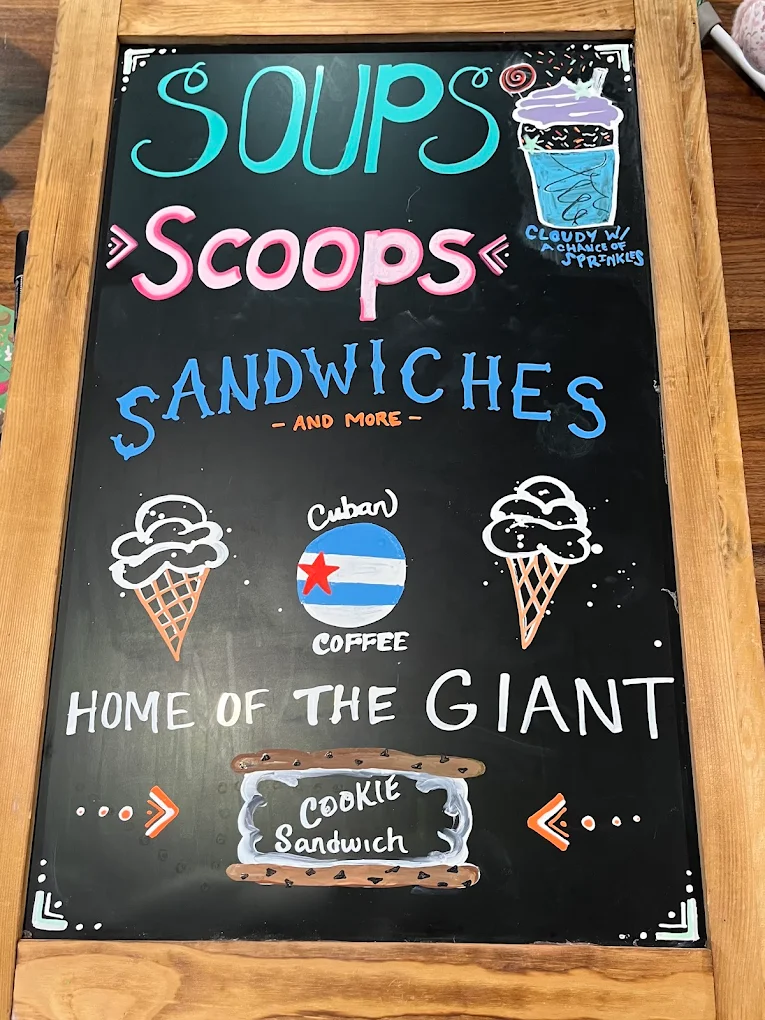 SOUPS
Scoops
CLOUDY W/
A CHANCE OF
SPRINKLES
SANDWICHES
- AND MORE -
Cuban
COFFEE
HOME OF THE GIANT
COOKIE
Sandwich